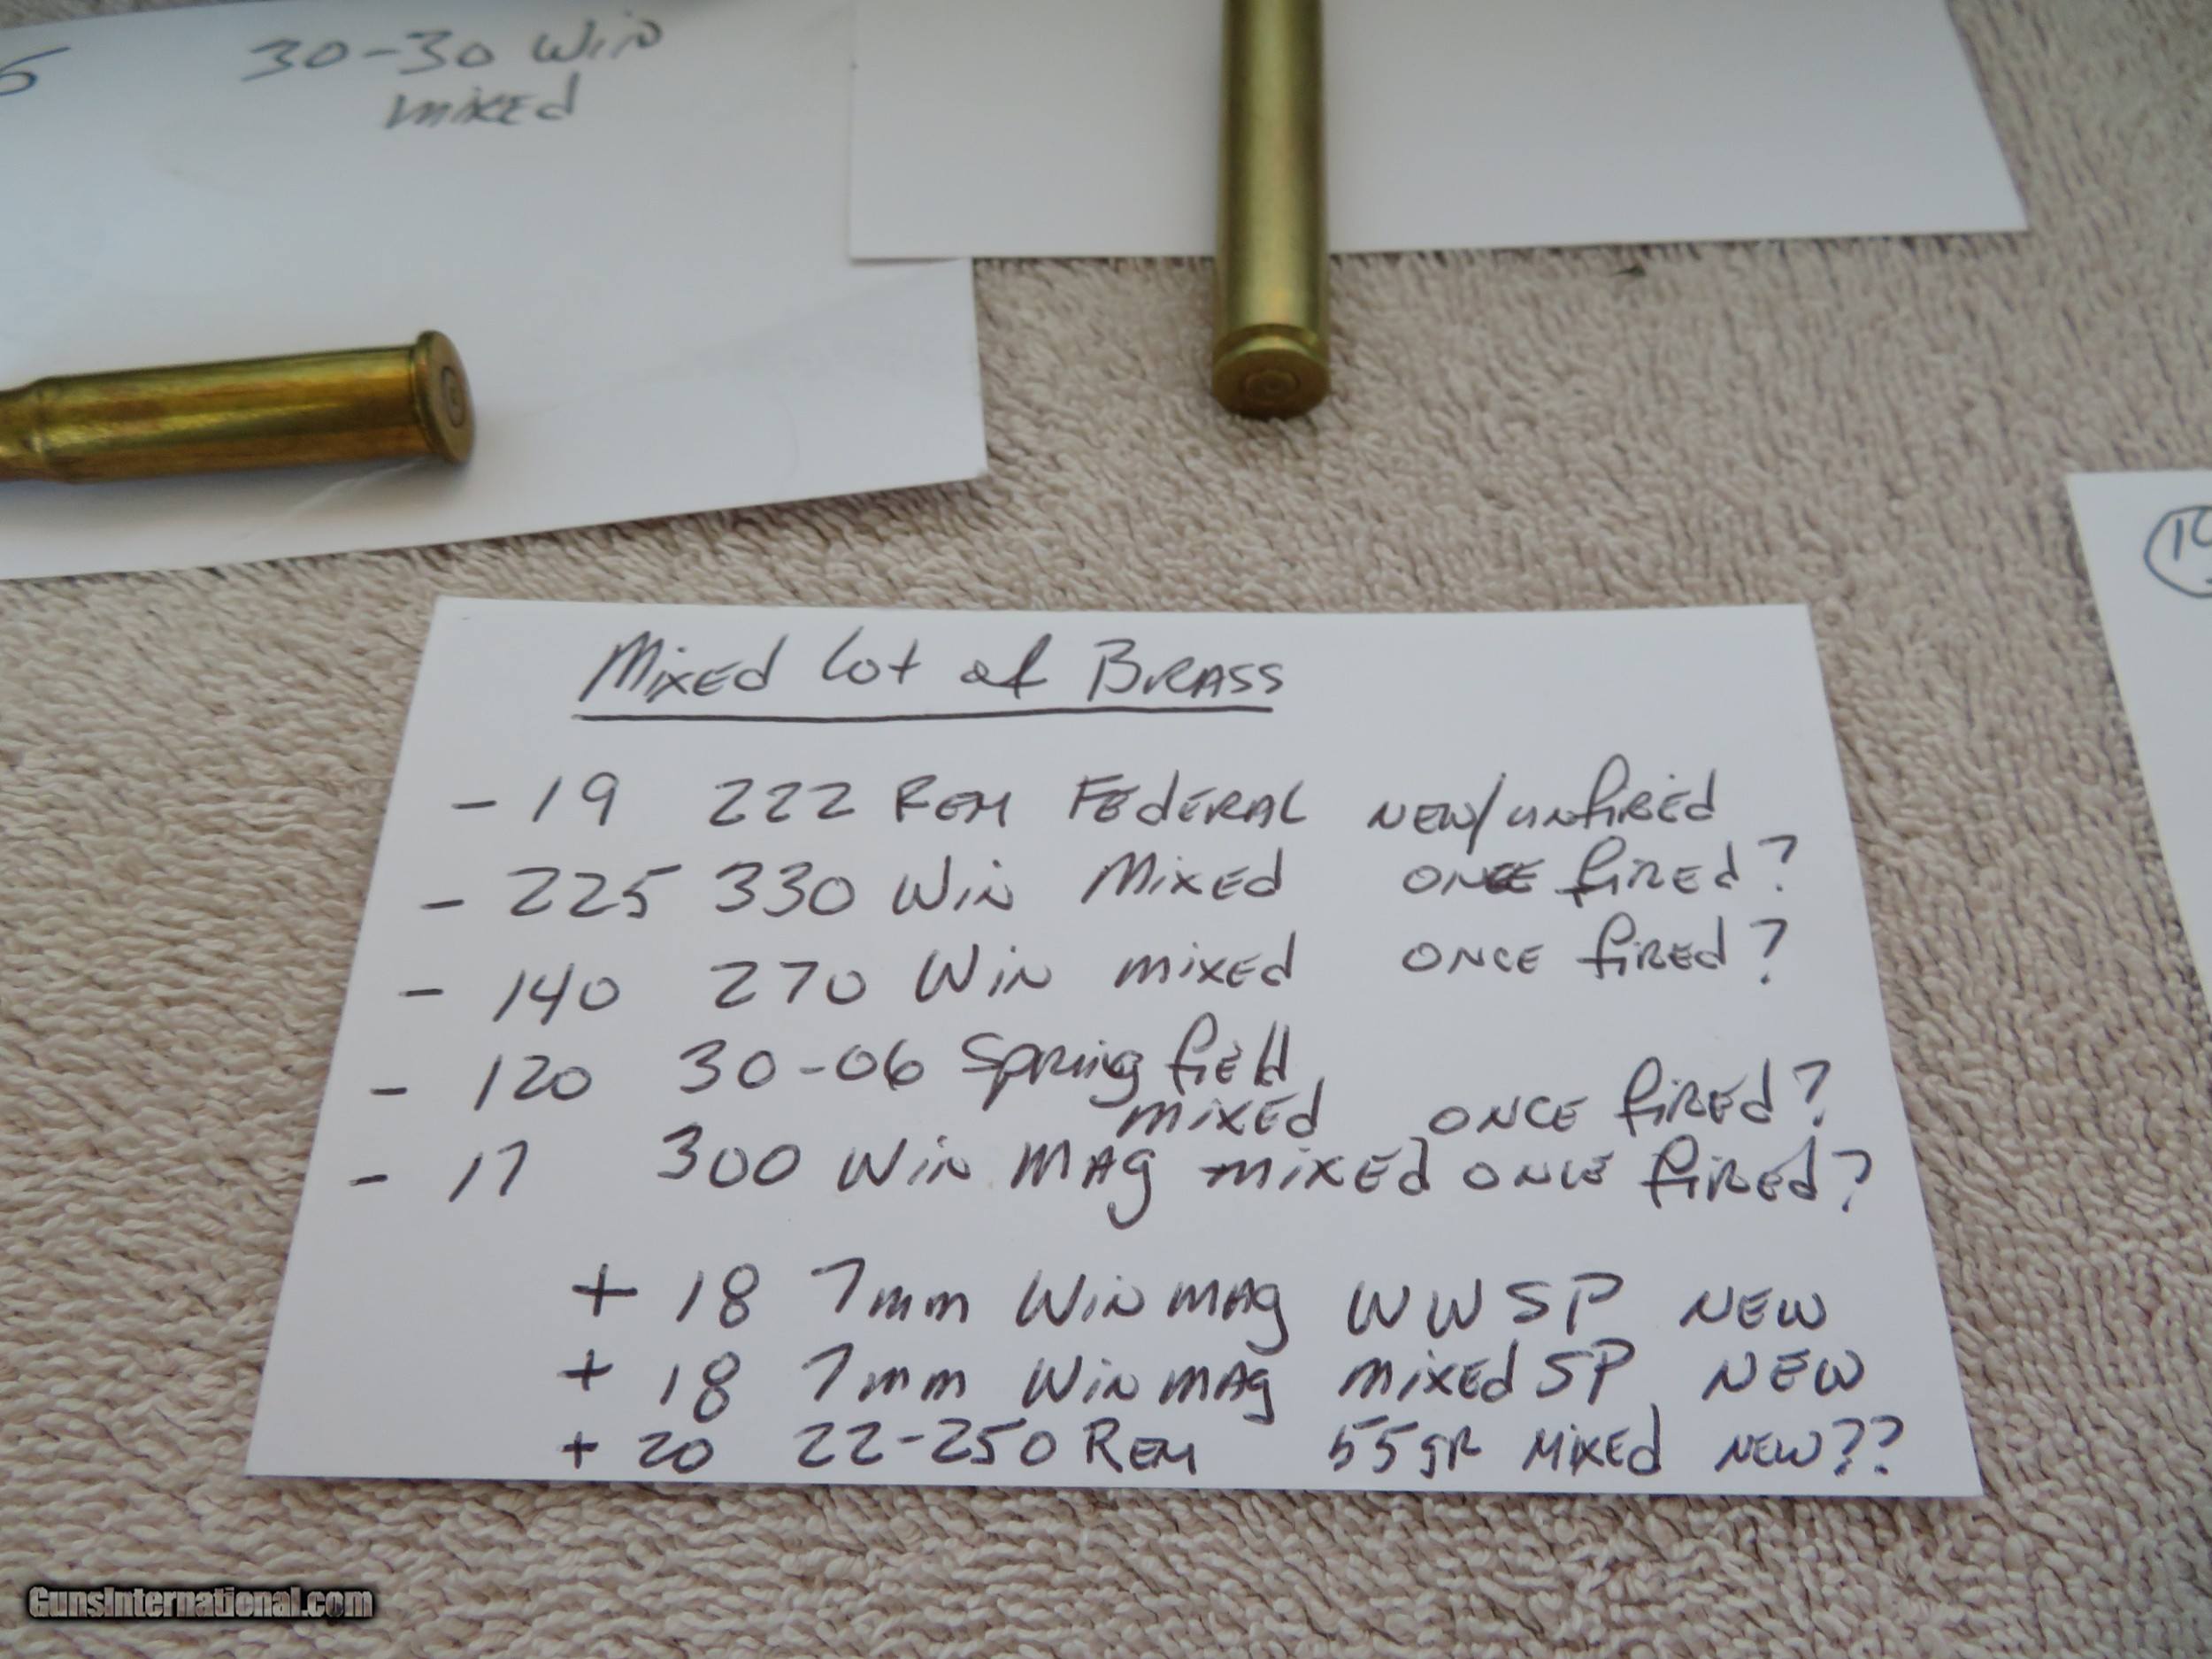 30-30 Win
mixed
Mixed Lot of Brass
- 19 222 Rem Federal new/unfired
- 225 330 Win Mixed once fired?
- 140 270 Win mixed once fired?
- 120 30-06 Springfield
mixed once fired?
- 17 300 Win Mag mixed once fired?
+ 18 7mm Win mag WW SP NEW
+ 18 7mm Win mag mixed SP NEW
+ 20 22-250 Rem 55gr Mixed NEW??
GunsInternational.com